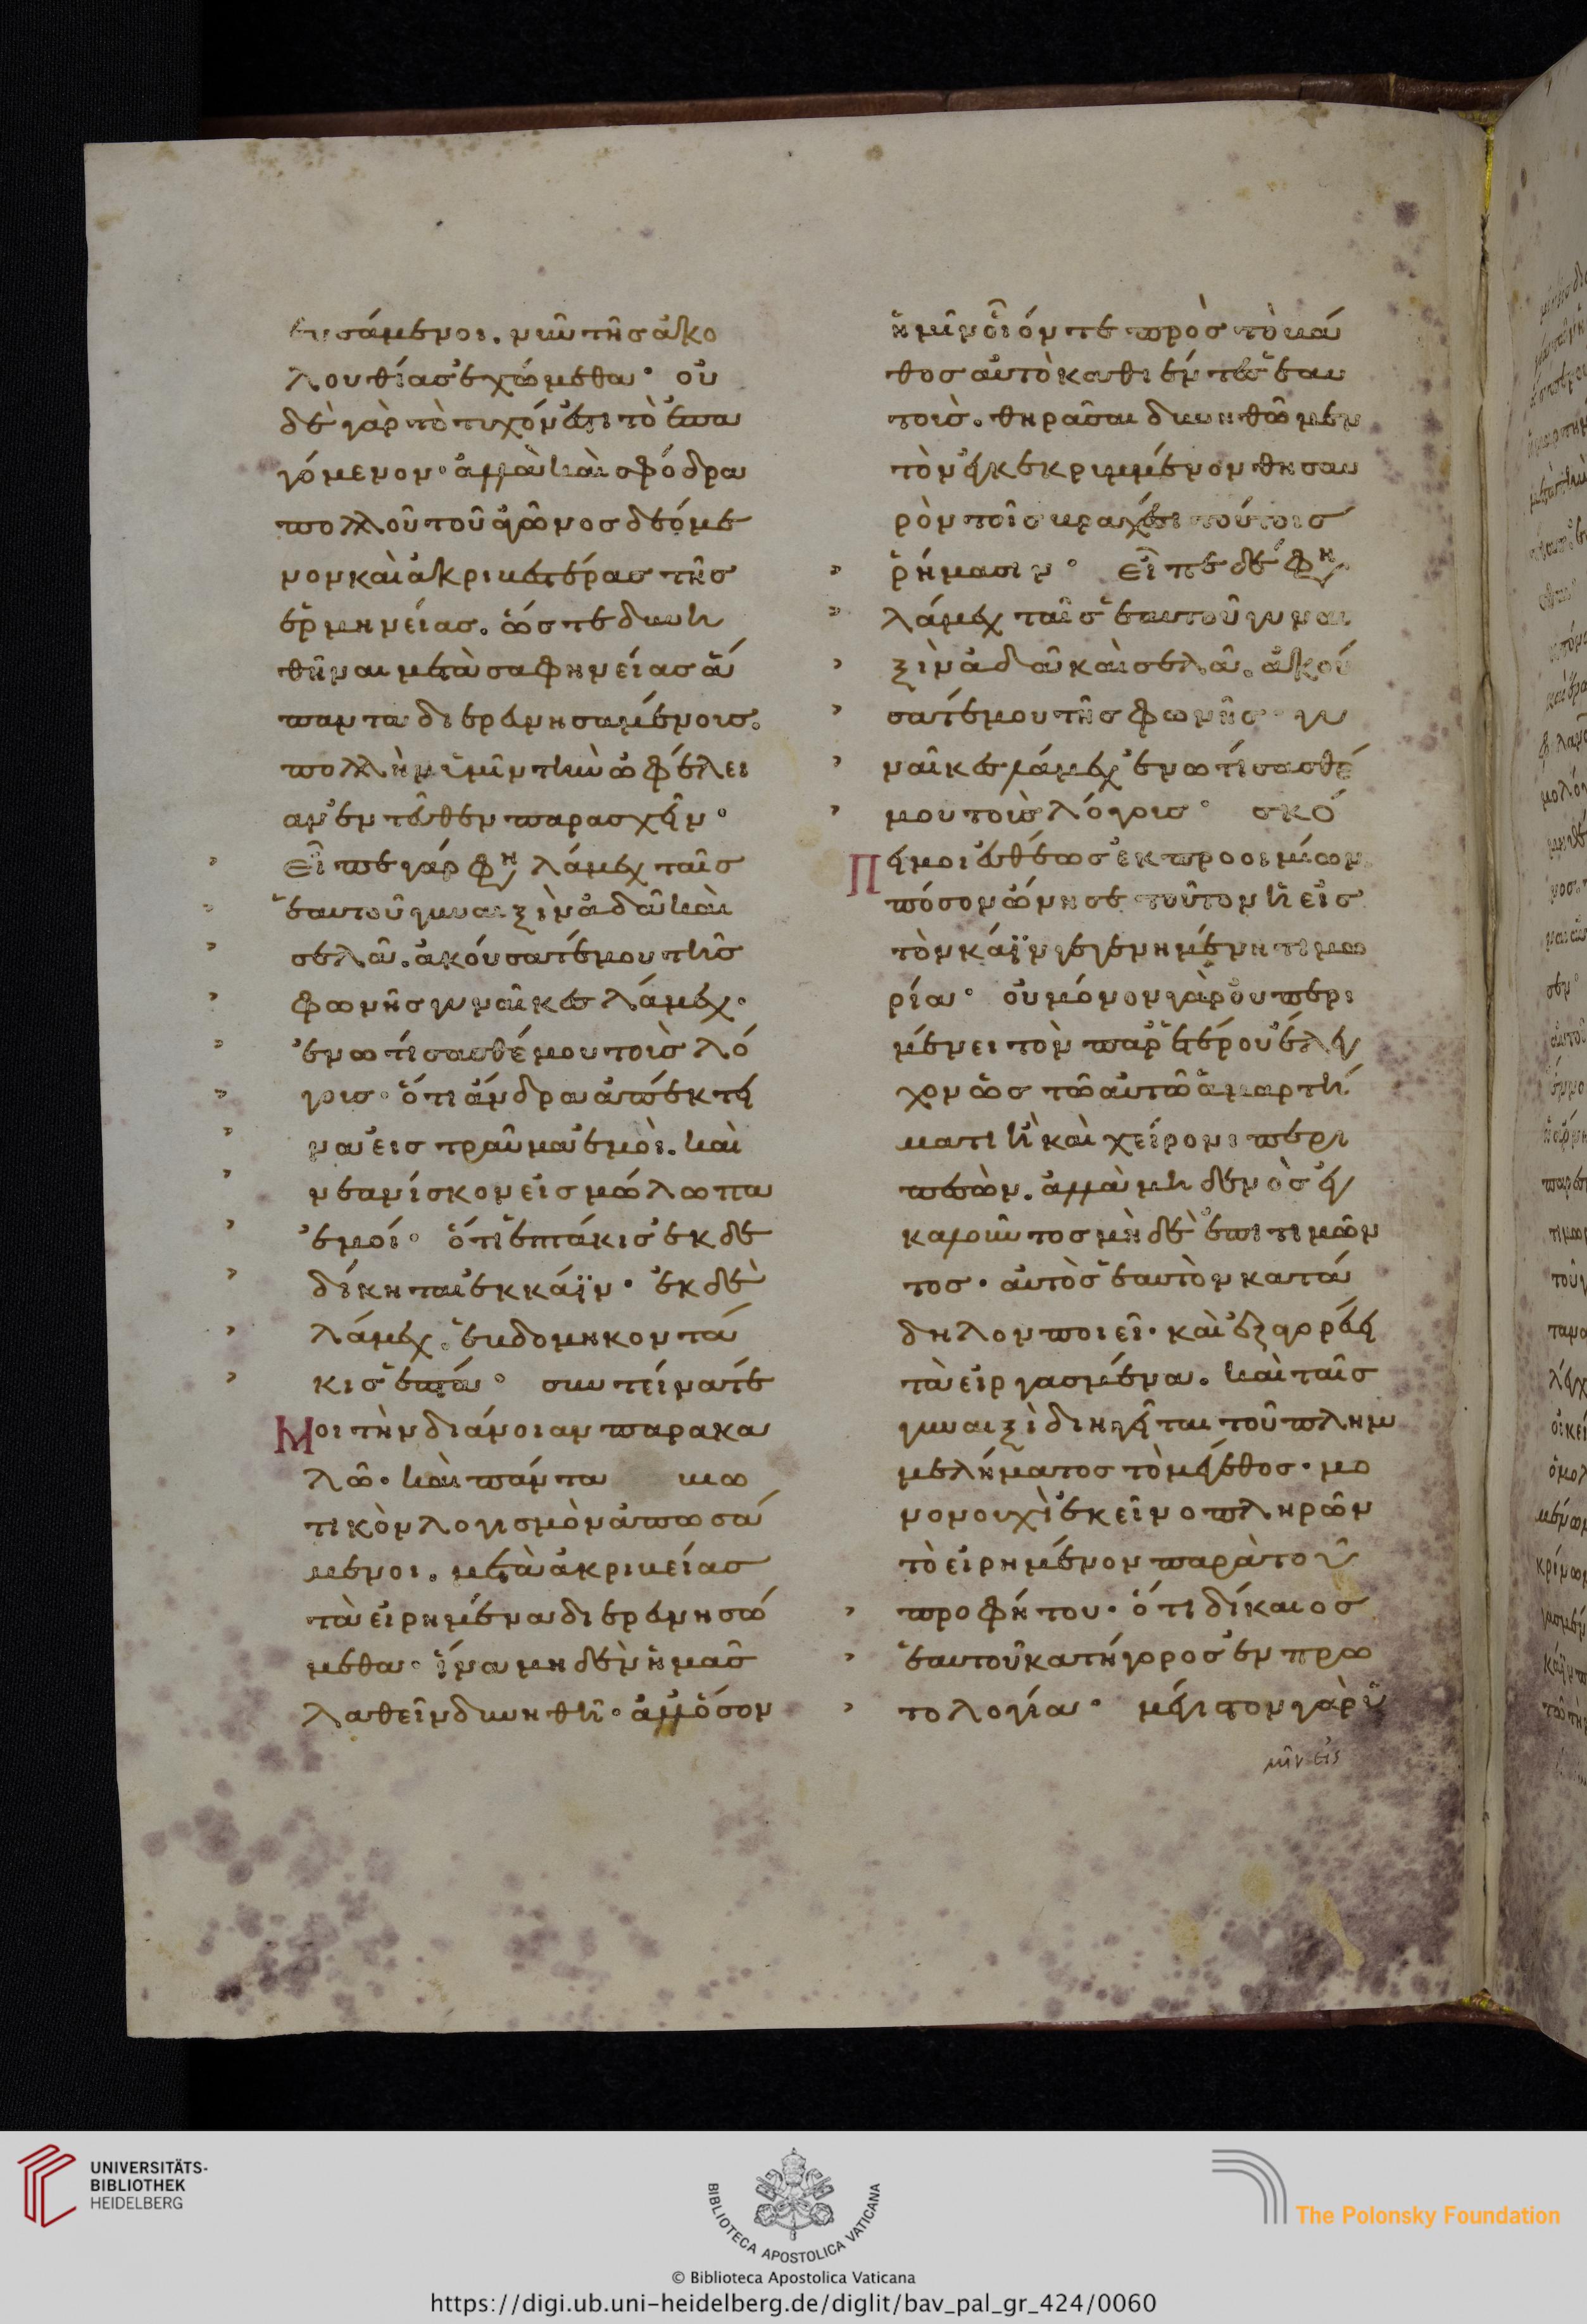 ευσάμενοι. νῦν τῆς ἀκο
λουθίας ἐχώμεθα· οὐ
δὲ γὰρ τὸ τυχόν ἐστι τὸ ἐπα
γόμενον· ἀλλὰ καὶ σφόδρα
πολλοῦ τοῦ ἀγῶνος δεόμε
νον καὶ ἀκριβεστέρας τῆς
ἑρμηνείας. ὥστε δυνη
θῆναι μετὰ σαφηνείας ἅ
παντα διερευνησαμένοις.
πολλὴν ὑμῖν τὴν ὠφέλει
αν ἐντεῦθεν παρασχεῖν·
Εἶπε γάρ φη λάμεχ ταῖς
ἑαυτοῦ γυναιξὶν ἀδᾶ καὶ
σελᾶ. ἀκούσατέ μου τῆς
φωνῆς γυναῖκες λάμεχ.
ἐνωτίσασθέ μου τοὺς λό
γους· ὅτι ἄνδρα ἀπέκτει
να εἰς τραῦμα ἐμοὶ. καὶ
νεανίσκον εἰς μώλωπα
ἐμοί· ὅτι ἑπτάκις ἐκδε
δίκηται ἐκ κάϊν· ἐκ δὲ
λάμεχ. ἑβδομηκοντά
κις ἑπτά· συντείνατέ
Μοι τὴν διάνοιαν παρακα
λῶ. καὶ πάντα βιω
τικὸν λογισμὸν ἀπωσά
μενοι. μετὰ ἀκριβείας
τὰ εἰρημένα διερευνησώ
μεθα· ἵνα μηδὲν ἡμᾶς
λαθεῖν δυνηθῆ· ἀλλ' ὅσον
ἡμῖν οἷόν τε πρὸς τὸ βά
θος αὐτὸ καθιέντες ἑαυ
τοὺς. θηρᾶσαι δυνηθῶμεν
τὸν ἐγκεκρυμμένον θησαυ
ρὸν τοῖς βραχέσι τούτοις
ῥήμασιν· Εἶπε δέ φη
λάμεχ ταῖς ἑαυτοῦ γυναι
ξὶν ἀδᾶ καὶ σελᾶ. ἀκού
σατέ μου τῆς φωνῆς γυ
ναῖκες λάμεχ ἐνωτίσασθέ
μου τοὺς λόγους· σκό
Πει μοι εὐθέως ἐκ προοιμίων
πόσον ὤνησε τοῦτον ἡ εἰς
τὸν κάϊν γεγενημένη τιμω
ρία· οὐ μόνον γὰρ οὐ περι
μένει τὸν παρ' ἑτέρου ἔλεγ
χον ὡς τῶ αὐτῶ ἁμαρτή
ματι ἢ καὶ χείρονι περι
πεσὼν. ἀλλὰ μηδενὸς ἐγ
καλοῦντος μηδὲ ἐπιτιμῶν
τος· αὐτὸς ἑαυτὸν κατά
δηλον ποιεῖ· καὶ ἐξαγορεύει
τὰ εἰργασμένα. καὶ ταῖς
γυναιξὶ διηγεῖται τοῦ πλημ
μελήματος τὸ μέγεθος. μο
νονουχὶ ἐκεῖνο πληρῶν
τὸ εἰρημένον παρὰ τοῦ
προφήτου· ὅτι δίκαιος
ἑαυτοῦ κατήγορος ἐν πρω
τολογία· μέγιστον γὰρ ὑ
μῖν εἰς
UNIVERSITÄTS-
BIBLIOTHEK
HEIDELBERG
BIBLIOTECA APOSTOLICA VATICANA
The Polonsky Foundation
© Biblioteca Apostolica Vaticana
https://digi.ub.uni-heidelberg.de/diglit/bav_pal_gr_424/0060